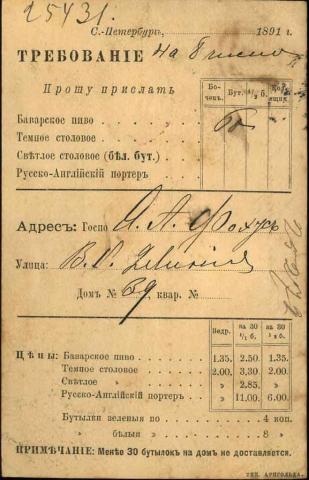 25431.
С.-Петербургъ, 1891 г.
ТРЕБОВАНІЕ на 8 число
Прошу прислать
Бочен. Бут. 1/2 б.
Баварское пиво
Темное столовое
Свѣтлое столовое (бѣл. бут.)
Русско-Англійскій портеръ
Адресъ: Госпо А. А. Фохтъ
Улица: В. О.
Домъ № 39, кварт. №
Ведр. на 30 1/1 б. на 30 1/2 б.
Цѣны: Баварское пиво 1.35. 2.50. 1.35.
Темное столовое 2.00. 3.30 2.00.
Свѣтлое » » 2.85. »
Русско-Англійскій портеръ » 11.00. 6.00.
Бутылки зеленыя по 4 коп.
» бѣлыя » 8 »
ПРИМѢЧАНІЕ: Менѣе 30 бутылокъ на домъ не доставляется.
ТИП. АРНГОЛЬДА.